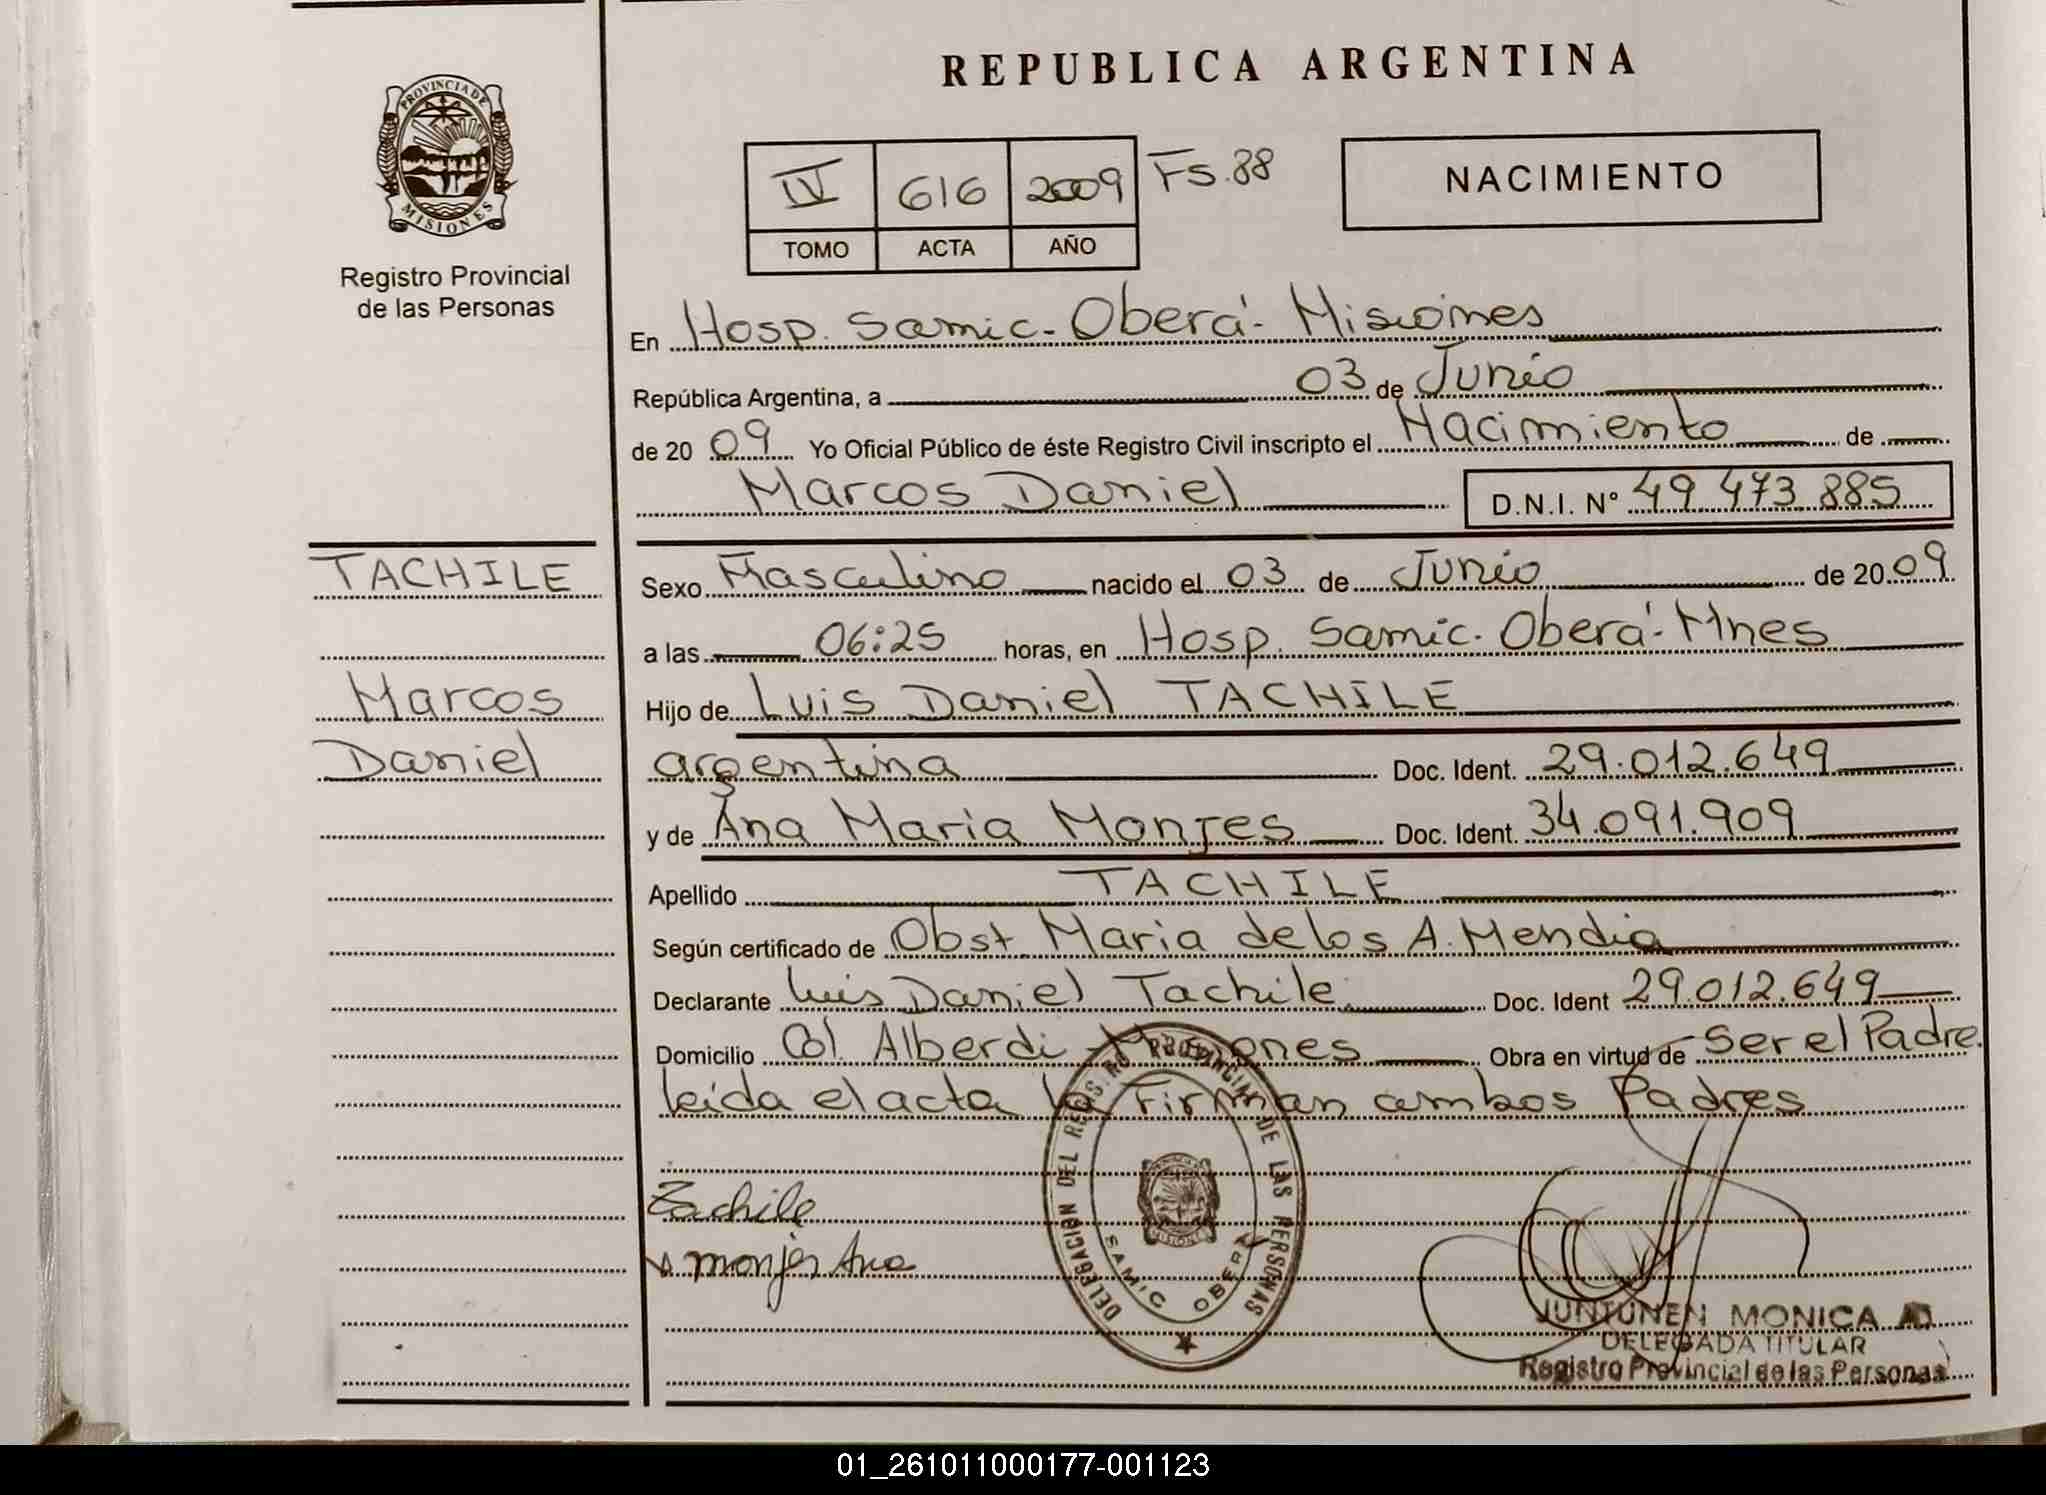 REPUBLICA ARGENTINA
PROVINCIA DE
MISIONES
Registro Provincial
de las Personas
IV 616 2009 Fs. 88
TOMO ACTA AÑO
NACIMIENTO
En Hosp. Samic - Oberá - Misiones
República Argentina, a 03 de Junio
de 2009 Yo Oficial Público de éste Registro Civil inscripto el Nacimiento de
Marcos Daniel D.N.I. Nº 49.473.885
TACHILE
Marcos
Daniel
Sexo Masculino nacido el 03 de Junio de 2009
a las 06:25 horas, en Hosp. Samic. Oberá - Mnes
Hijo de Luis Daniel TACHILE
argentina Doc. Ident. 29.012.649
y de Ana Maria Monjes Doc. Ident. 34.091.909
Apellido TACHILE
Según certificado de Obst Maria delos A. Mendia
Declarante Luis Daniel Tachile Doc. Ident 29.012.649
Domicilio Col. Alberdi Misiones Obra en virtud de Ser el Padre.
leída el acta la Firman ambos Padres
Tachile
monjes Ana
DELEGACIÓN DEL REGISTRO PROVINCIAL DE LAS PERSONAS
MISIONES
SAMIC OBERÁ
JUNTUNEN MONICA
DELEGADA TITULAR
Registro Provincial de las Personas
01_261011000177-001123